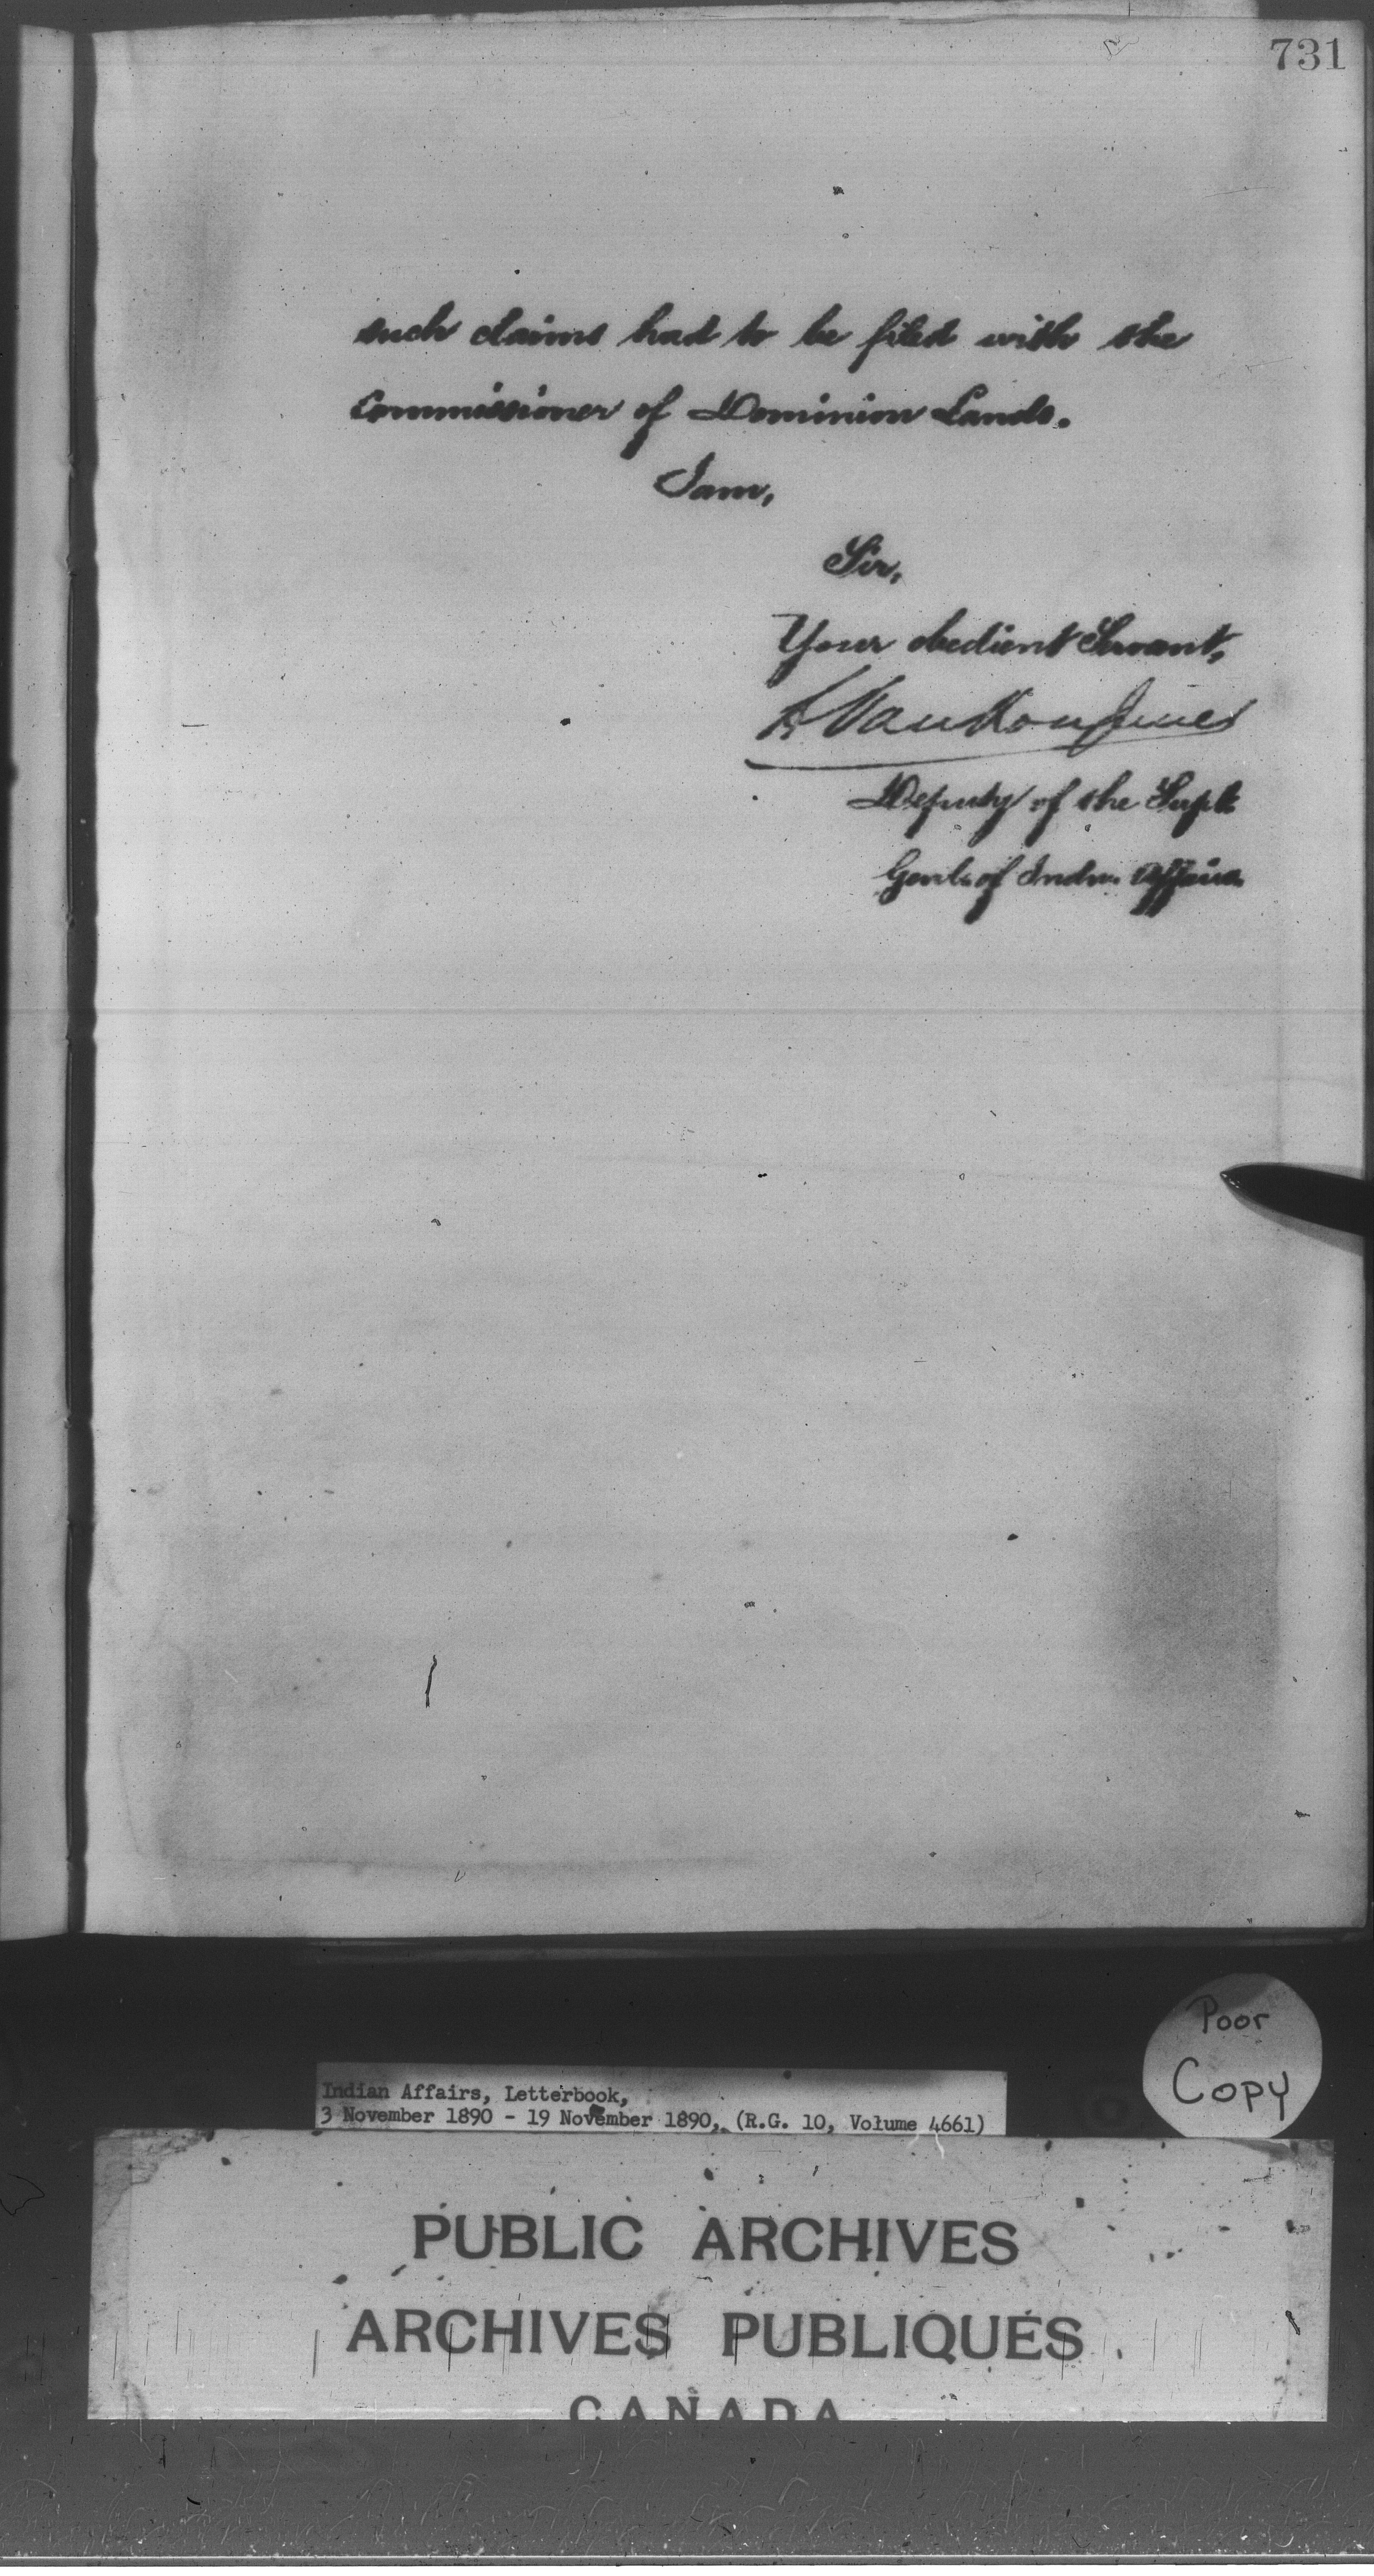 731
such claims had to be filed with the
Commissioner of Dominion Lands.
I am,
Sir,
Your obedient Servant,
L. Vankoughnet
Deputy of the Supt.
Genl. of Indn. Affairs.
Poor
Copy
Indian Affairs, Letterbook,
3 November 1890 - 19 November 1890, (R.G. 10, Volume 4661)
PUBLIC ARCHIVES
ARCHIVES PUBLIQUES
CANADA